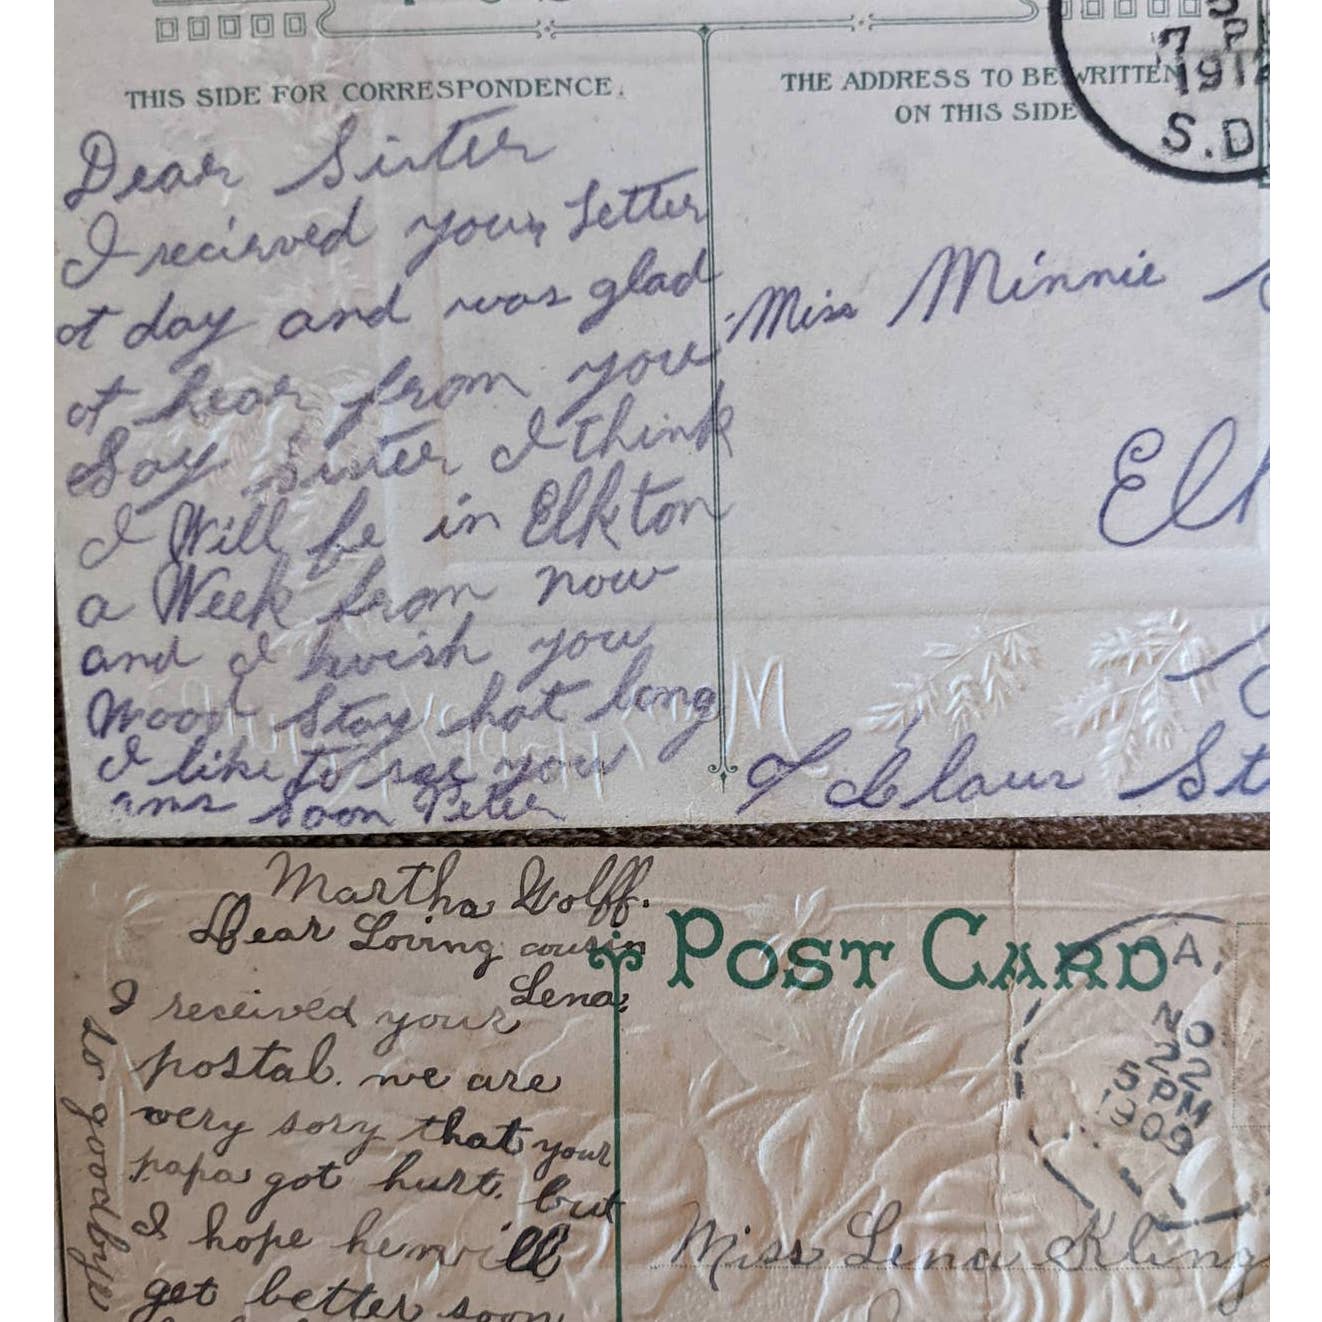 THIS SIDE FOR CORRESPONDENCE.
THE ADDRESS TO BE WRITTEN
ON THIS SIDE
7 P
191
S.D
Dear Sister
I recieved your Letter
ot day and was glad
ot hear from you
Say sister I think
I Will be in Elkton
a Week from now
and I wish you
Wood Stay hat long
I like to see you
ans soon Peter
Miss Minnie
Elk
St
Martha Wolff.
Dear Loving cousin
Lena,
I received your
postal. we are
very sory that your
papa got hurt. but
I hope he will
get better soon
so goodbye
POST CARD
A.
NO
22
5 PM
1909
Miss Lena Kling